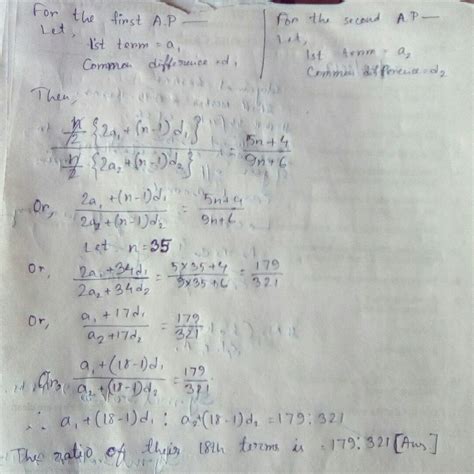 For the first A.P —
Let,
1st term = a₁
Common difference = d₁
For the second A.P —
Let,
1st term = a₂
Common difference = d₂
Then,
n/2 {2a₁ + (n-1) d₁} / n/2 {2a₂ + (n-1) d₂} = 5n+4 / 9n+6
Or, 2a₁ + (n-1)d₁ / 2a₂ + (n-1)d₂ = 5n+4 / 9n+6
Let n = 35
Or, 2a₁ + 34d₁ / 2a₂ + 34d₂ = 5×35+4 / 9×35+6 = 179 / 321
Or, a₁ + 17d₁ / a₂ + 17d₂ = 179 / 321
Or, a₁ + (18-1)d₁ / a₂ + (18-1)d₂ = 179 / 321
∴ a₁ + (18-1)d₁ : a₂ + (18-1)d₂ = 179 : 321
The ratio of their 18th terms is = 179 : 321 [Ans]